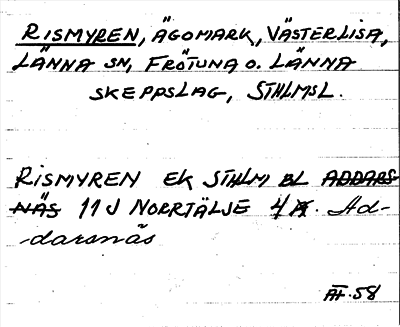 RISMYREN, ÄGOMARK, VÄSTERLISA,
LÄNNA SN, FRÖTUNA O. LÄNNA
SKEPPSLAG, STHLMSL.
RISMYREN EK STHLM BL ADDARS-
NÄS 11J NORRTÄLJE 4 Ad-
darsnäs
ÄF. 58